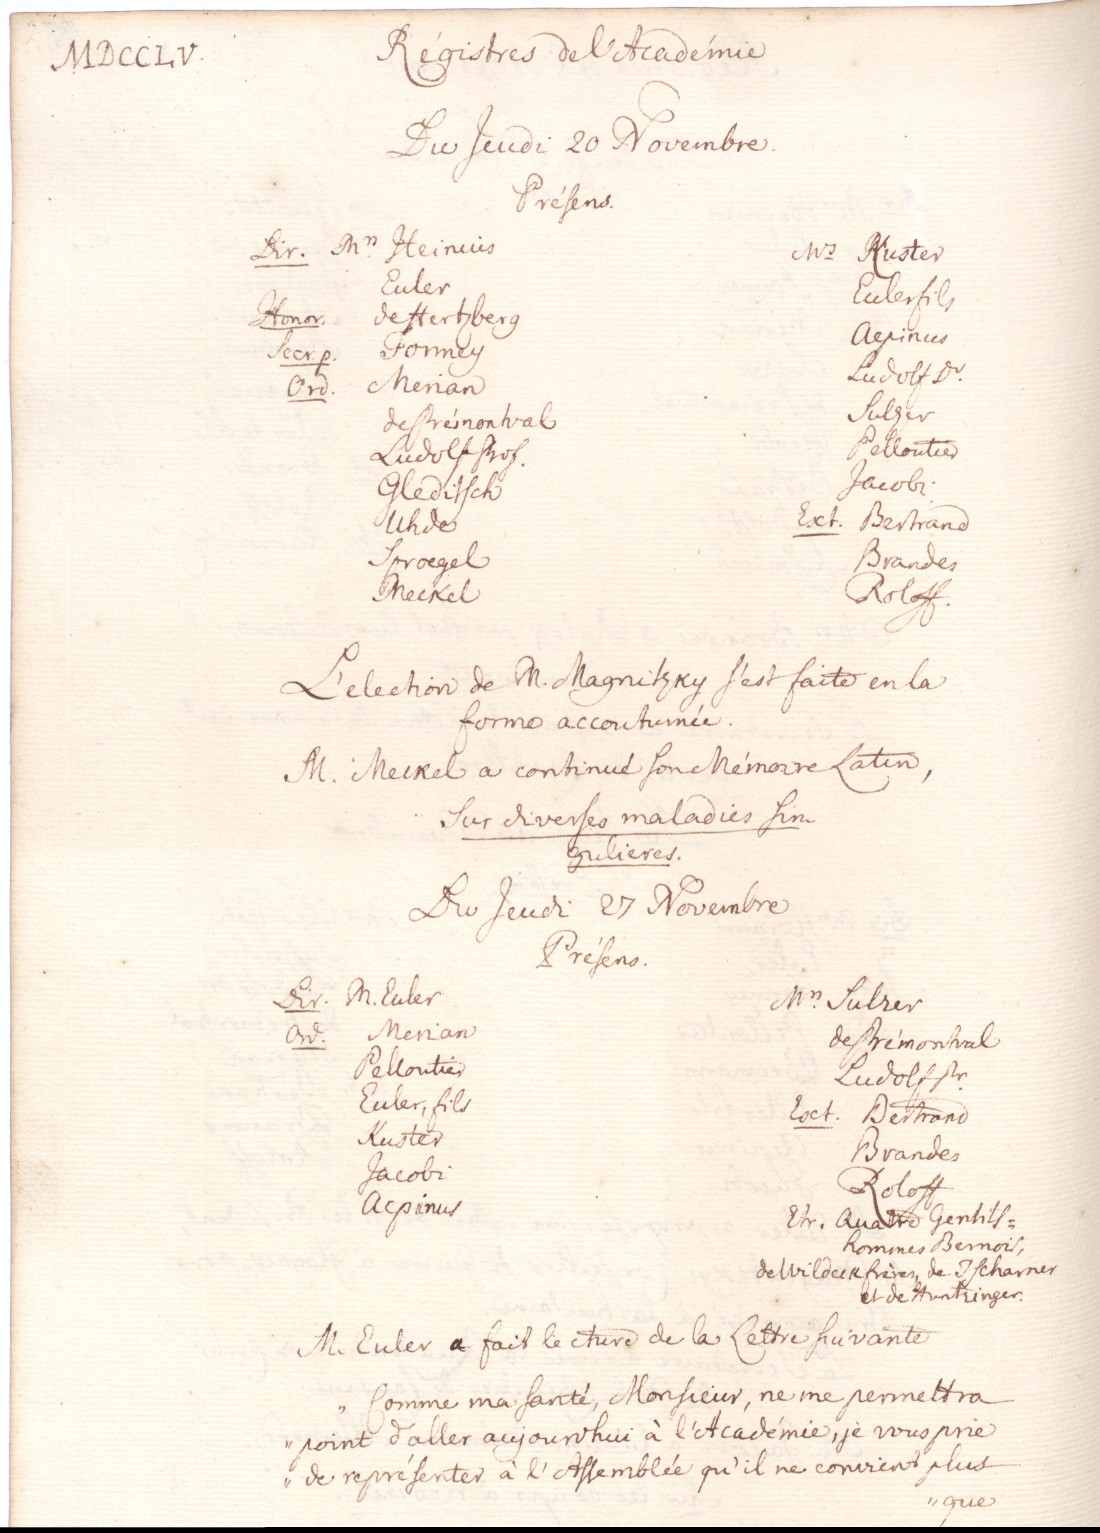 MDCCLV.
Régistres de l'Académie
Du Jeudi 20 Novembre.
Présens.
Dir. Mrs Heinius
Euler
Honor. de Hertzberg
Secr. p. Formey
Ord. Merian
de Prémontval
Ludolf Prof.
Gleditsch
Uhde
Sproegel
Meckel
Mrs Kuster
Euler fils
Aepinus
Ludolf Dr.
Sulzer
Pelloutier
Jacobi.
Ext. Bertrand
Brandes
Roloff.
L'election de M. Magnitzky s'est faite en la
forme accoutumée.
M. Meckel a continué son Mémoire Latin,
Sur diverses maladies sin-
gulieres.
Du Jeudi 27 Novembre
Présens.
Dir. M. Euler
Ord. Merian
Pelloutier
Euler, fils
Kuster
Jacobi
Aepinus
Mrs Sulzer
de Prémontval
Ludolf Pr.
Ext. Bertrand
Brandes
Roloff
Etr. Quatre Gentils=
hommes Bernois,
de Wildeck frères, de Tscharner
et de Huntzinger.
M. Euler a fait lecture de la Lettre suivante
„ Comme ma santé, Monsieur, ne me permettra
„ point d'aller aujourd'hui à l'Académie, je vous prie
„ de représenter à l'Assemblée qu'il ne convient plus
„ que